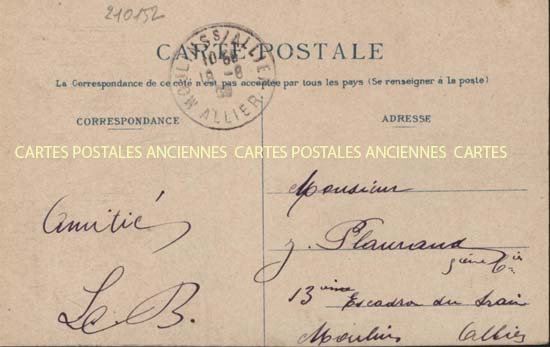 210152
CARTE POSTALE
La Correspondance de ce côté n'est pas acceptée par tous les pays (Se renseigner à la poste)
CORRESPONDANCE
ADRESSE
CARTES POSTALES ANCIENNES CARTES POSTALES ANCIENNES CARTES
Amitié
L. B.
Monsieur
J. Plauraud
13ème Escadron du train
Moulins Allier
ALLIER